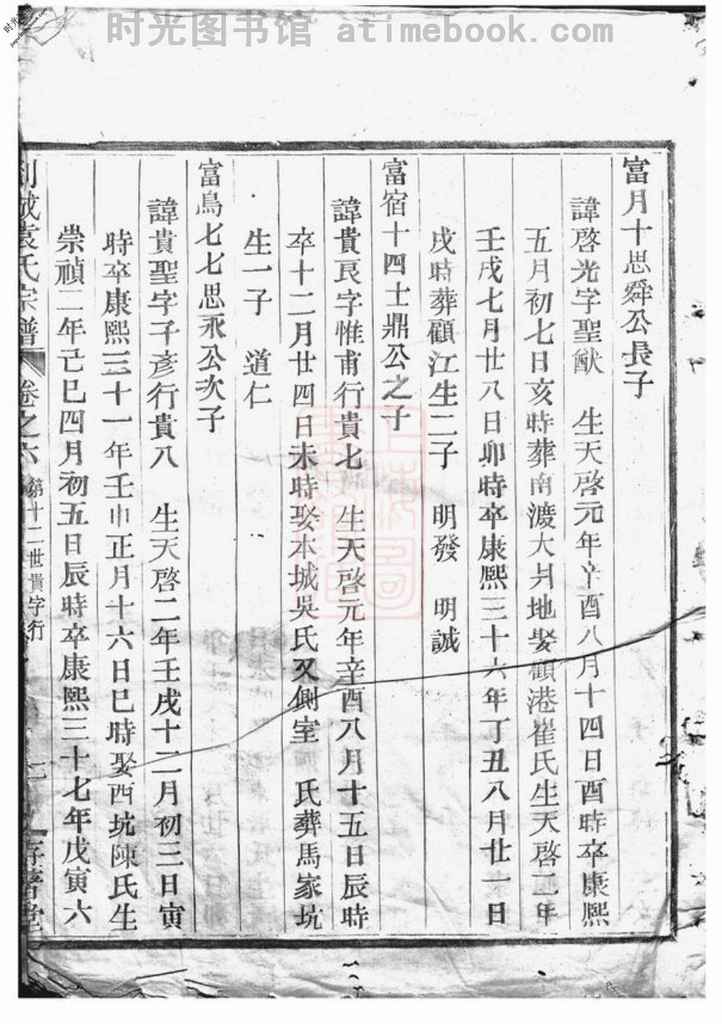 时光图书馆 atimebook.com
富月十思舜公長子
諱啓光字聖猷 生天啓元年辛酉八月十四日酉時卒康熙
五月初七日亥時葬南渡大月地娶顧港崔氏生天啓二年
壬戌七月廿八日卯時卒康熙三十六年丁丑八月廿一日
戌時葬顧江生二子 明發 明誠
富宿十四士鼎公之子
諱貴良字惟甫行貴七 生天啓元年辛酉八月十五日辰時
卒十二月廿四日未時娶本城吳氏又側室 氏葬馬家坑
生一子 道仁
富鳥七七思永公次子
諱貴聖字子彥行貴八 生天啓二年壬戌十二月初三日寅
時卒康熙三十一年壬申正月十六日巳時娶西坑陳氏生
崇禎二年己巳四月初五日辰時卒康熙三十七年戊寅六
城袁氏宗譜 卷之六 第十二世貴字行